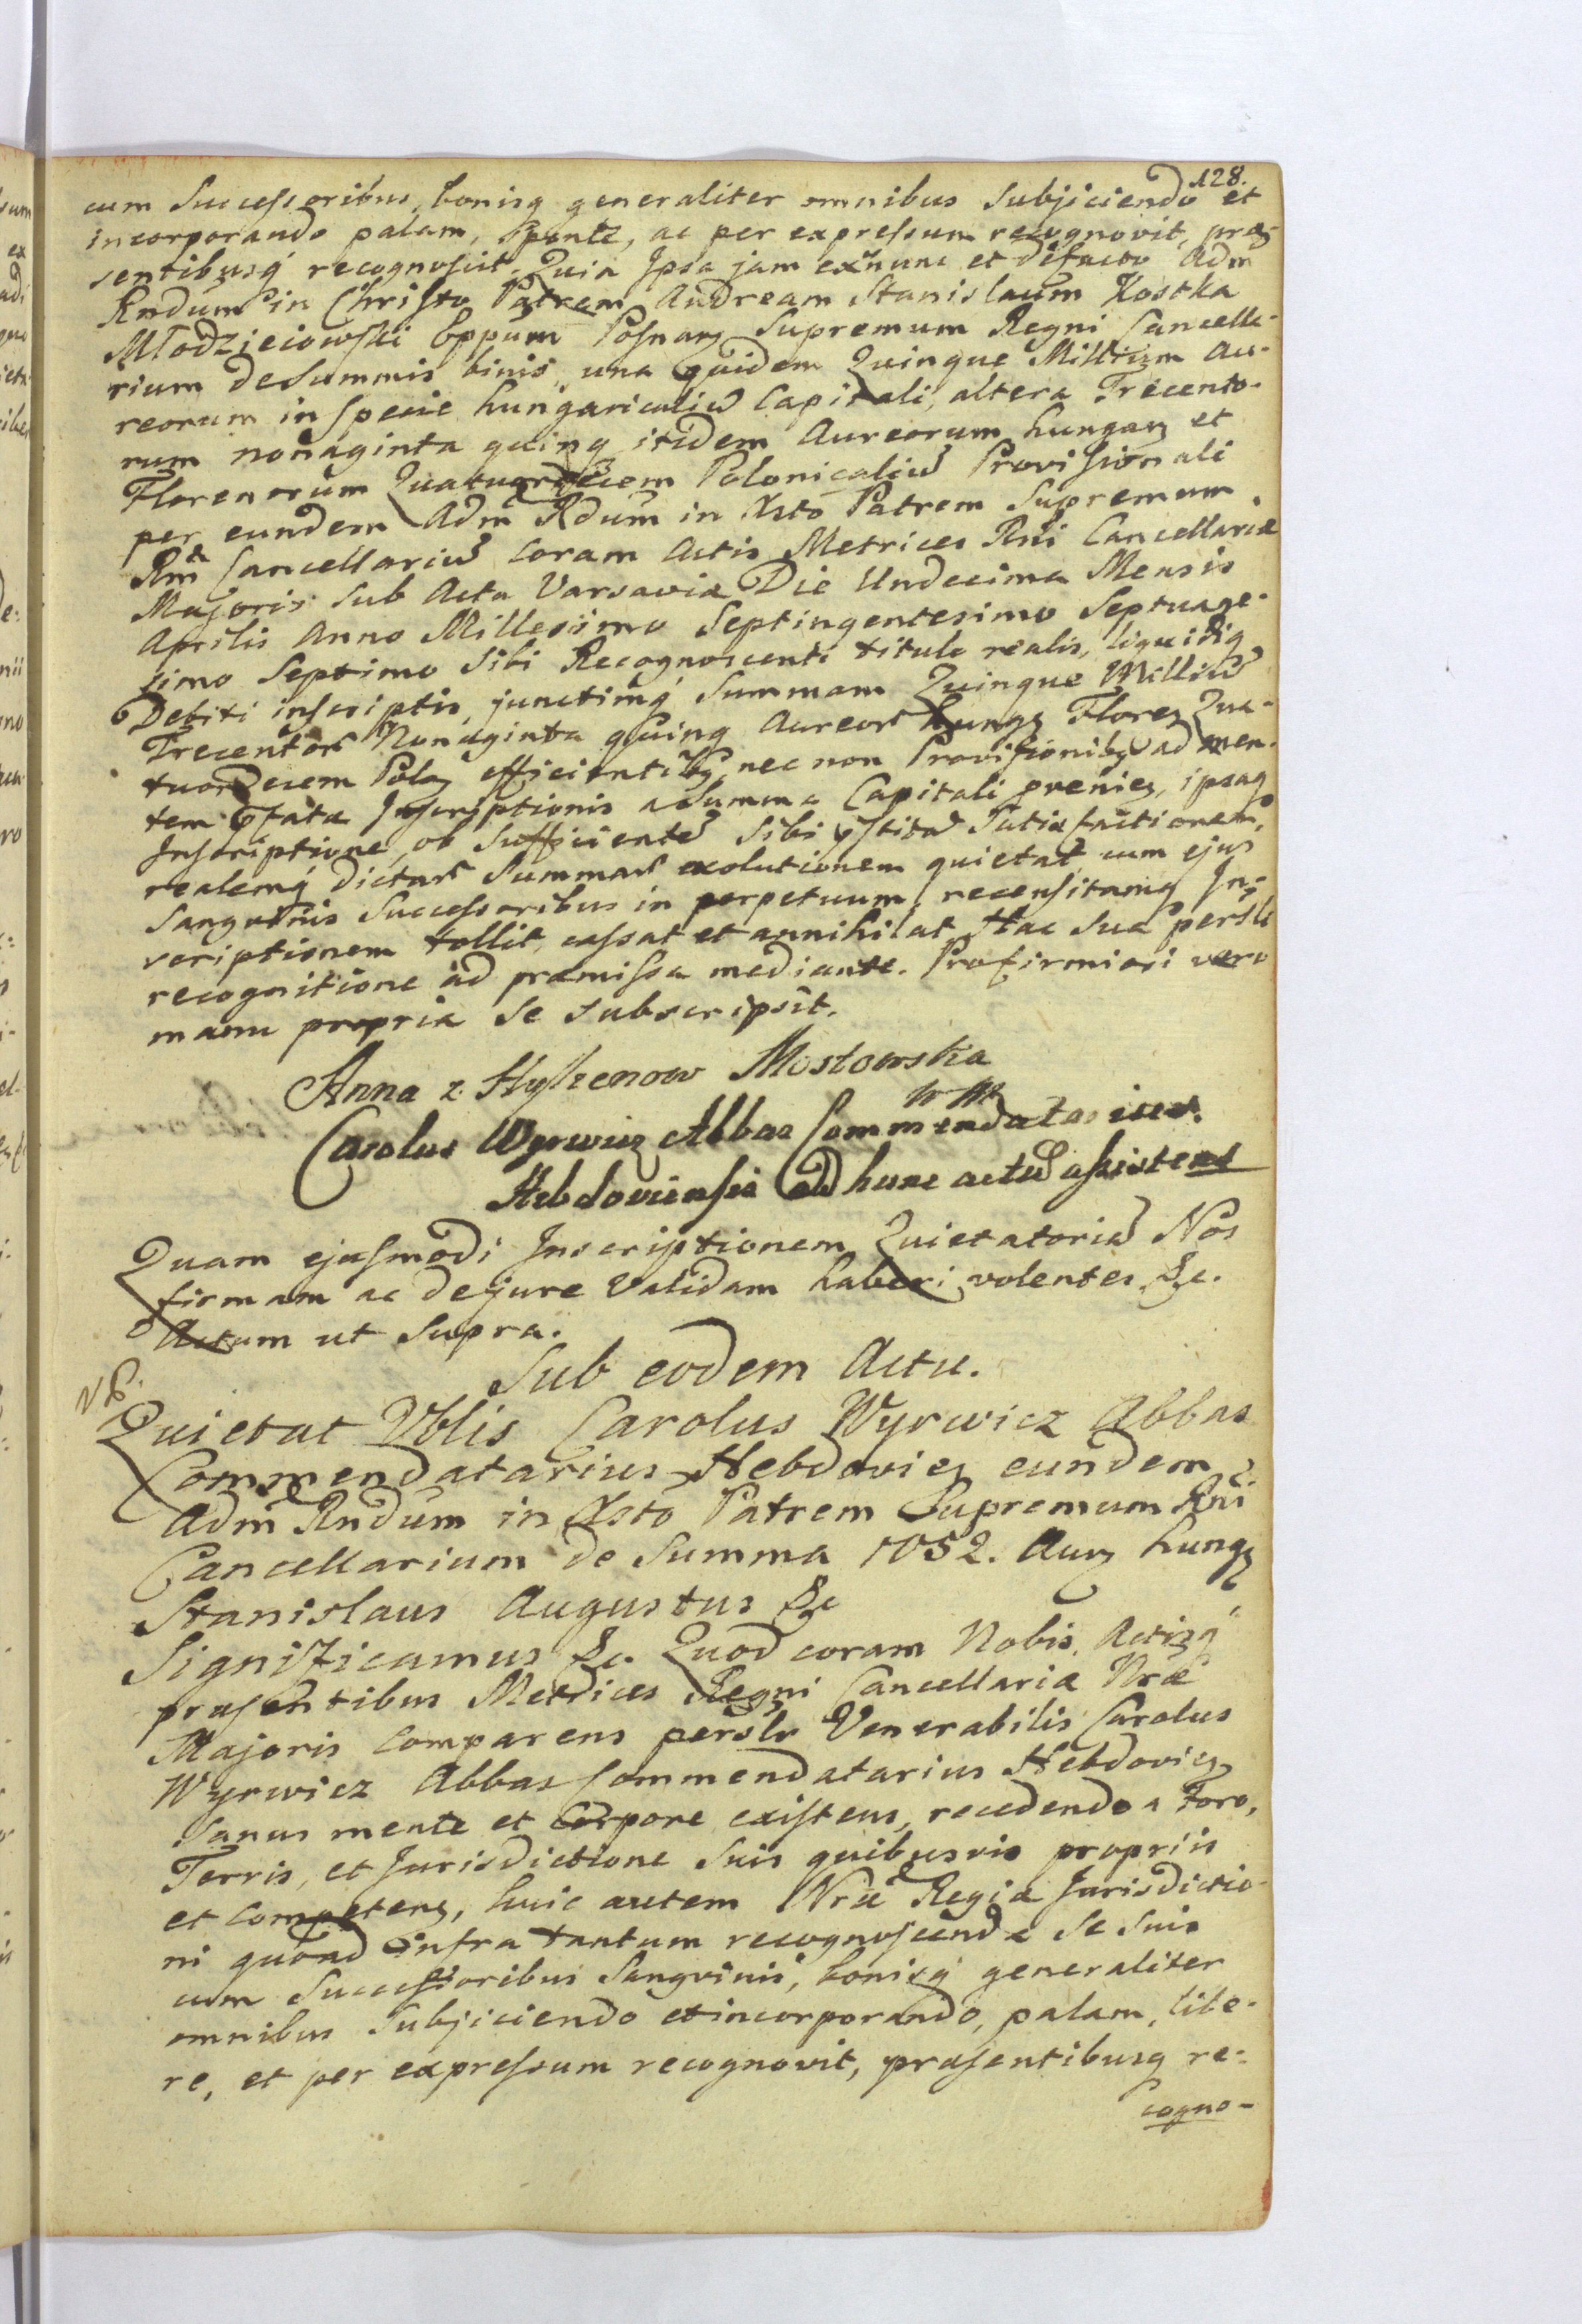 128.
cum Successoribus, bonisq generaliter omnibus subjiciendo et
incorporando palam, sponte, ac per expressum recognovit, præ-
sentibusq recognoscit. Quia Ipsa jam ex nunc et defacto Adm
Rndum in Christo Patrem Andream Stanislaum Kostka
Młodziejowski Eppum Posnan Supremum Regni Cancella-
rium de Summis binis, una quidem Quinque Millium Au-
reorum in specie hungaricaliu Capitali, altera Trecento-
rum nonaginta quinq itidem Aureorum hungar et
Florenorum Quatuordecem Polonicaliu Provisionali
per eundem Adm Rdum in Xsto Patrem Supremum
Rni Cancellariu coram Actis Metrices Rni Cancellariæ
Majoris sub Acta Varsaviæ Die Undecima Mensis
Aprilis Anno Millesimo Septingentesimo Septuage-
simo Septimo sibi Recognoscenti titulo realis, liquidiq
Debiti inscriptis, junctimq Summam Quinque Milliu
Trecentor Nonaginta quinq Aureor hung Floren Qua-
tuordecem Pol efficientibq, nec non Provisionibq ad men-
tem pfatæ Inscriptionis a Summa Capitali prenien, ipsaq
Inscriptione, ob sufficiente sibi pstita Satisfactionem,
realemq dictar Summar exolutionem quietat, cum ejus
Sangvinis Successoribus in perpetuum, recensitamq In-
scriptionem tollit, cassat et annihilat, Hac sua persli
recognitione ad præmissa mediante. Pro firmiori vero
manu propria se subscripsit.
Anna z Hylzenow Mostowska
W M
Carolus Wyrwicz Abbas Commendatarius
Hebdoviensis ad hunc actu assistens
Quam ejusmodi Inscriptionem Quietatoria Nos
firmam ac de jure validam haberi volentes &c.
Actum ut supra.
Sub eodem Actu.
NB.
Quietat Vblis Carolus Wyrwicz Abbas
Commendatarius Hebdovien eundem
Adm Rndum in Xsto Patrem Supremum Rni
Cancellarium de Summa 1052. Aur hung
Stanislaus Augustus &c
Significamus &c. Quod coram Nobis, Actisq
præsentibus Metrices Regni Cancellariæ Nræ
Majoris comparens perslr Venerabilis Carolus
Wyrwicz Abbas Commendatarius Hebdovien
Sanus mente et Corpore existens, recedendo a Foro,
Terris, et Jurisdictione suis quibusvis propriis
et competen, huic autem Nræ Regiæ Jurisdictio-
ni quoad infra tantum recognoscenda se suis
cum Successoribus Sangvinis, bonisq generaliter
omnibus subjiciendo et incorporando, palam, libe-
re, et per expressum recognovit, præsentibusq re-
cogno-